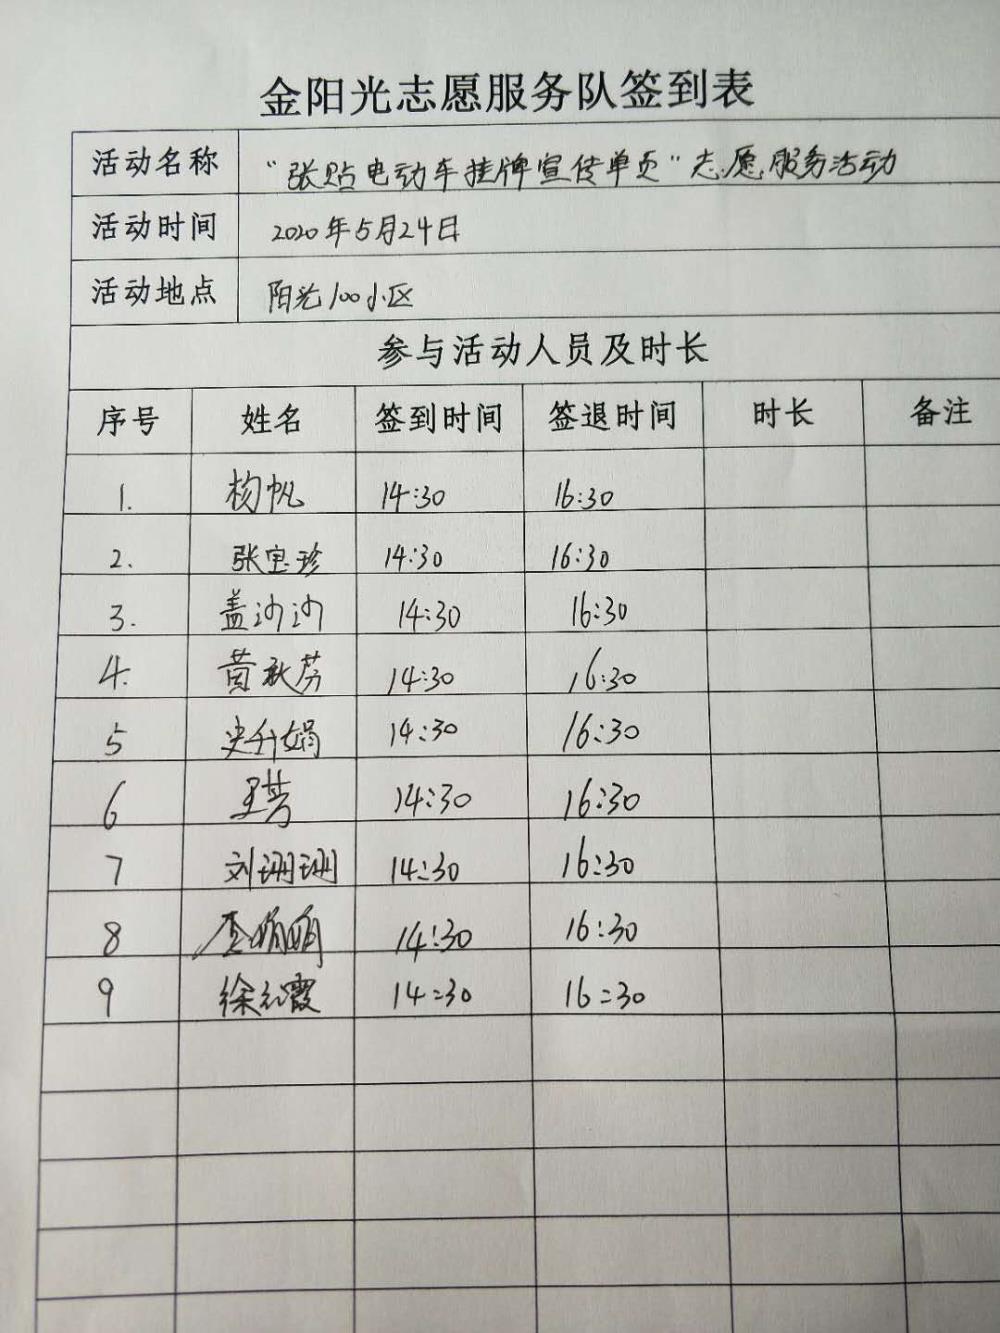 金阳光志愿服务队签到表
活动名称 “张贴电动车挂牌宣传单页”志愿服务活动
活动时间 2020年5月24日
活动地点 阳光100小区
参与活动人员及时长
序号 姓名 签到时间 签退时间 时长 备注
1. 杨帆 14:30 16:30
2. 张宝珍 14:30 16:30
3. 盖沙沙 14:30 16:30
4. 黄秋芬 14:30 16:30
5 史升娟 14:30 16:30
6 王芳 14:30 16:30
7 刘珊珊 14:30 16:30
8 14:30 16:30
9 徐红霞 14:30 16:30